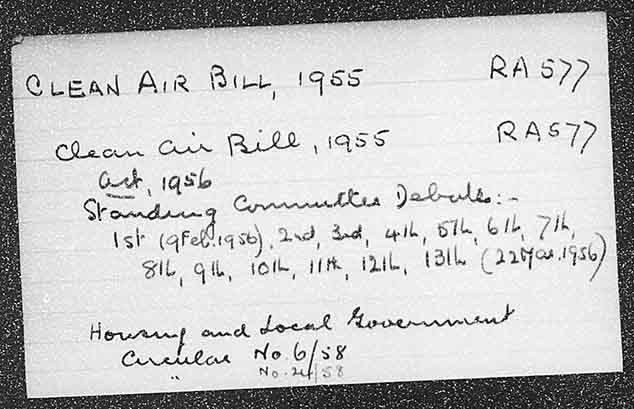 CLEAN AIR BILL, 1955 RA 577
Clean Air Bill, 1955 RA577
Act, 1956
Standing Committee Debates:-
1st (9 Feb. 1956), 2nd, 3rd, 4th, 5th, 6th, 7th,
8th, 9th, 10th, 11th, 12th, 13th (22 Mar. 1956)
Housing and Local Government
Circular No. 6/58
" No. 24/58